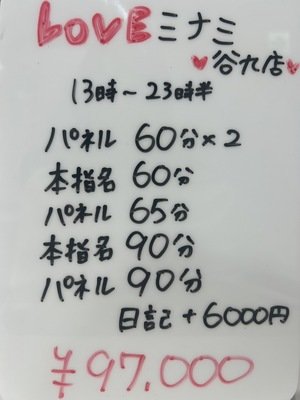 LOVEミナミ
♥谷九店♥
13時～23時半
パネル 60分×2
本指名 60分
パネル 65分
本指名 90分
パネル 90分
日記 + 6000円
¥97.000